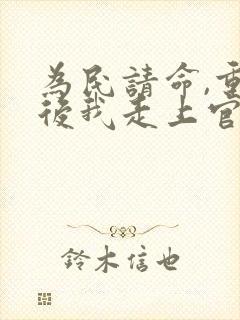 為民請命,重
後我走上官
鈴木信也